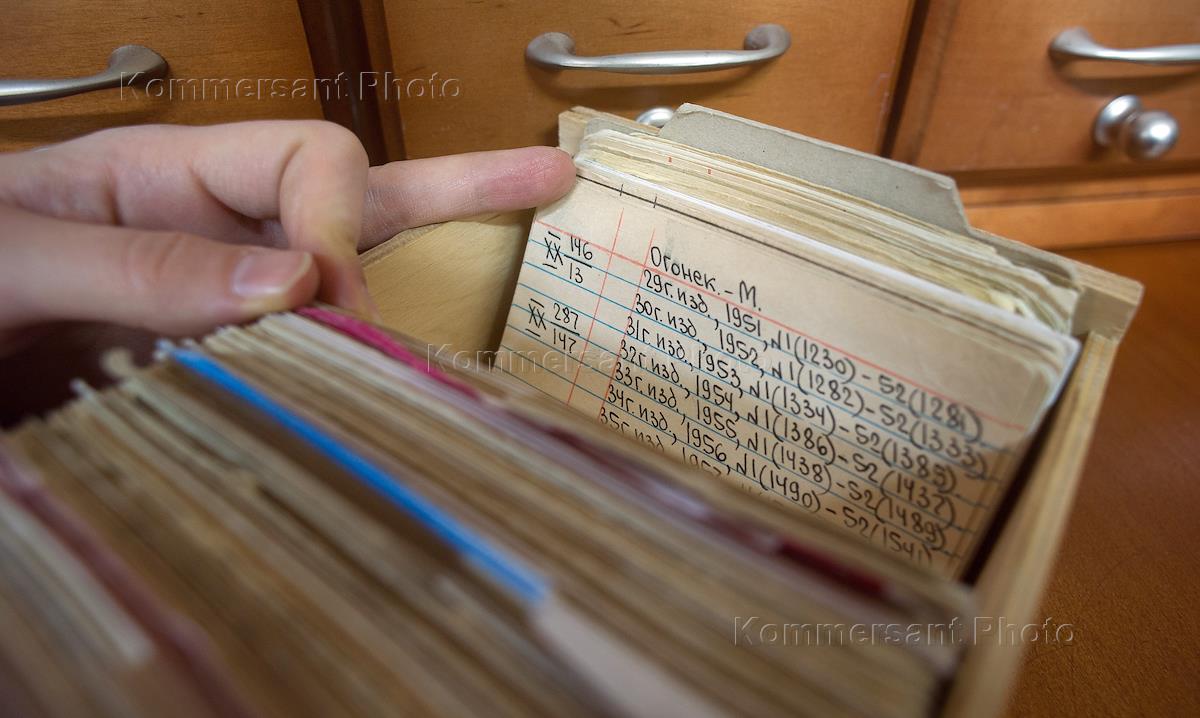 Kommersant Photo
XX 146
13
XX 287
147
Огонек.-М.
29г.изд., 1951, №1(1230)-52(1281)
30г.изд., 1952, №1(1282)-52(1333)
31г.изд., 1953, №1(1334)-52(1385)
32г.изд., 1954, №1(1386)-52(1437)
33г.изд., 1955, №1(1438)-52(1489)
34г.изд., 1956, №1(1490)-52(1541)
35г.изд.
Kommersant Photo
Kommersant Photo